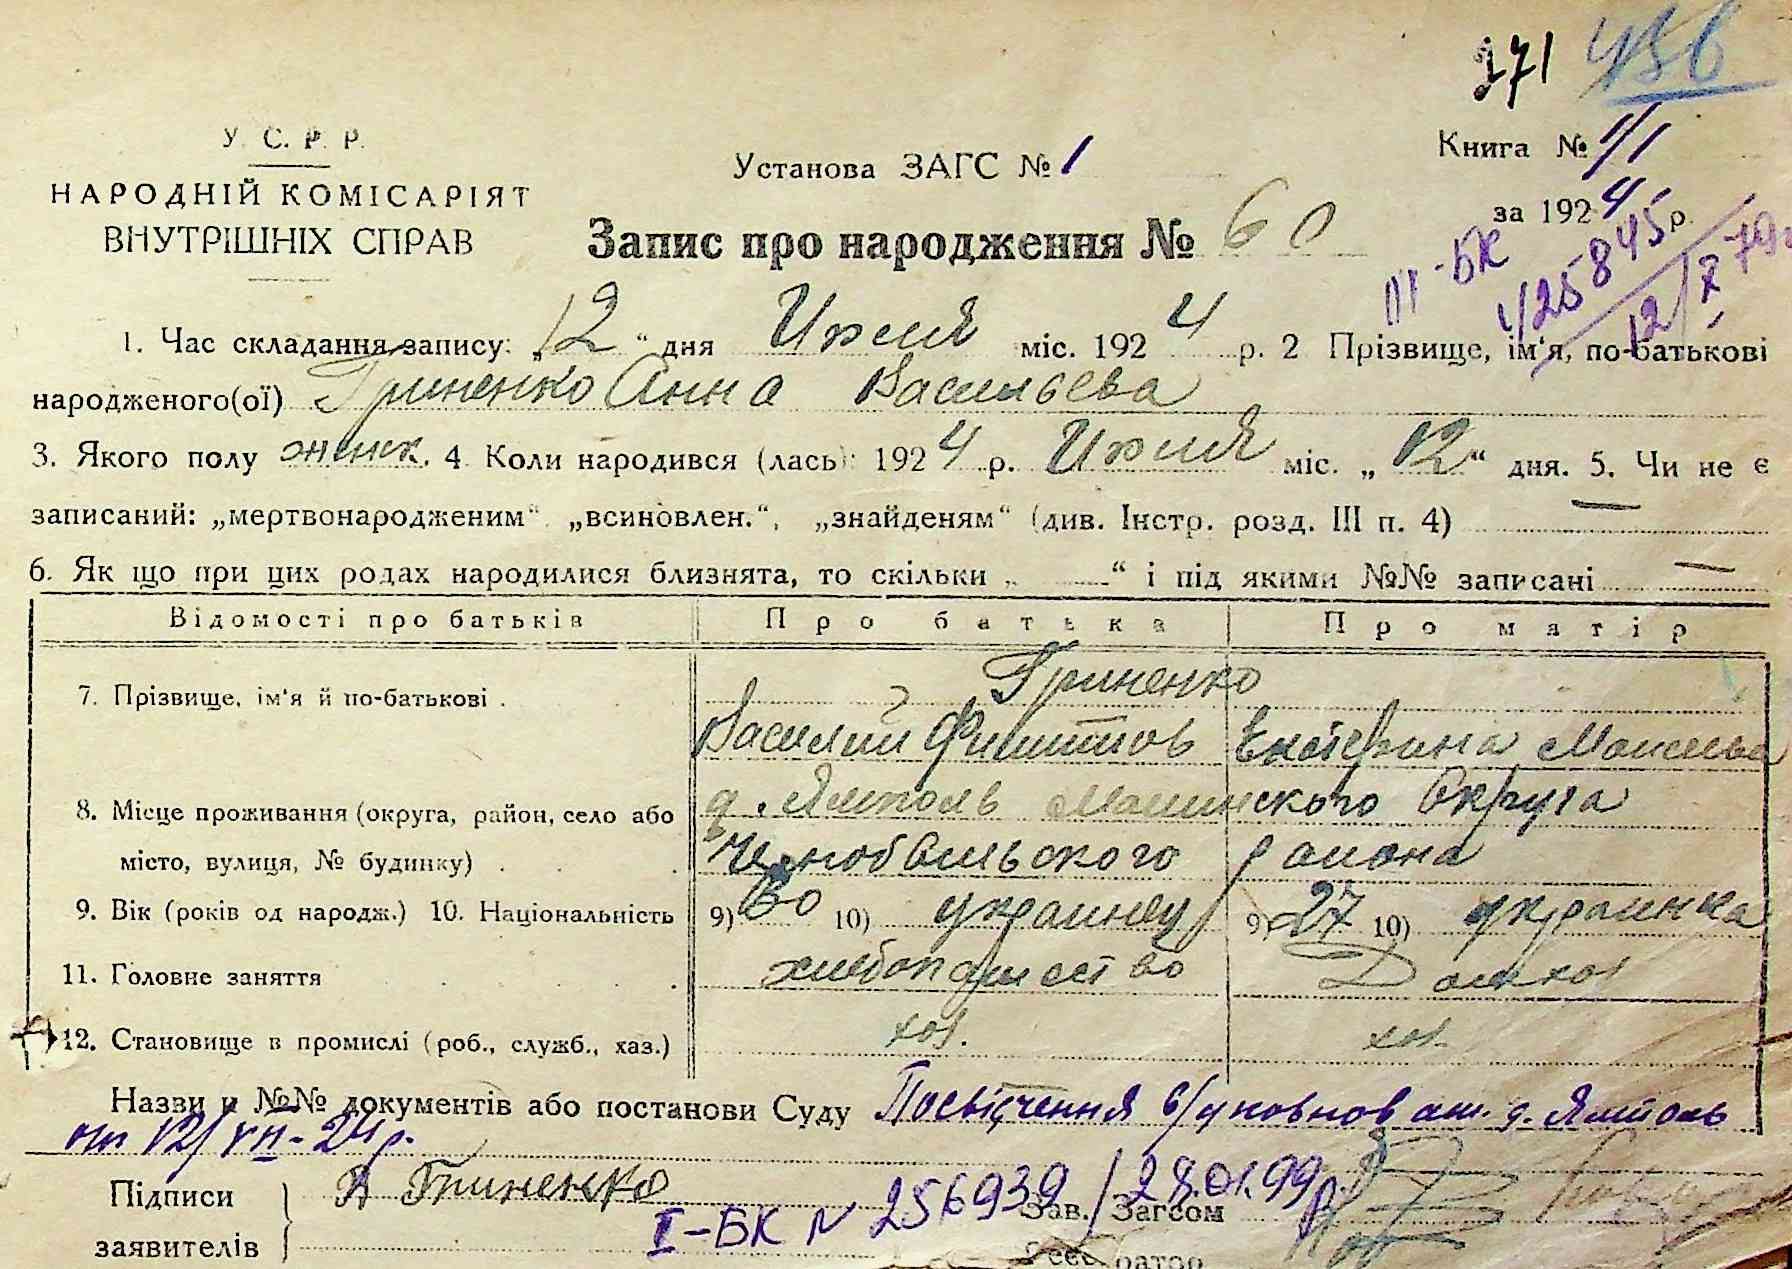 371 436
У. С. Р. Р.
НАРОДНІЙ КОМІСАРІЯТ
ВНУТРІШНІХ СПРАВ
Установа ЗАГС № 1
Книга № 1/1
за 1924 р.
Запис про народження № 60
III-БК
425845
12/X 79
1. Час складання запису: „12“ дня Июля міс. 1924 р. 2 Прізвище, ім‘я, по-батькові
народженого(ої) Гриненко Анна Васильева
3. Якого полу женск. 4. Коли народився (лась): 1924 р. Июля міс. „12“ дня. 5. Чи не є
записаний: „мертвонародженим“, „всиновлен.“, „знайденям“ (див. Інстр. розд. III п. 4) —
6. Як що при цих родах народилися близнята, то скільки „ —“ і під якими №№ записані —
Відомості про батьків Про батька Про матір
7. Прізвище, ім‘я й по-батькові . Гриненко
Василий Филиппов Екатерина Моисеева
8. Місце проживання (округа, район, село або д. Ямполь Малинского Округа
місто, вулиця, № будинку) . Чернобыльского района
9. Вік (років од народж.) 10. Національність 9) 10) украинец 9) 27 10) украинка
11. Головне заняття хлебопашество Домхоз
12. Становище в промислі (роб., служб., хаз.) хоз. хоз.
Назви и №№ документів або постанови Суду Посвідчення д. Ямполь
от 12/VII-24 р.
Підписи В Гриненко
заявителів I-БК N 256939 / 28.01.99р. Зав. Загсом